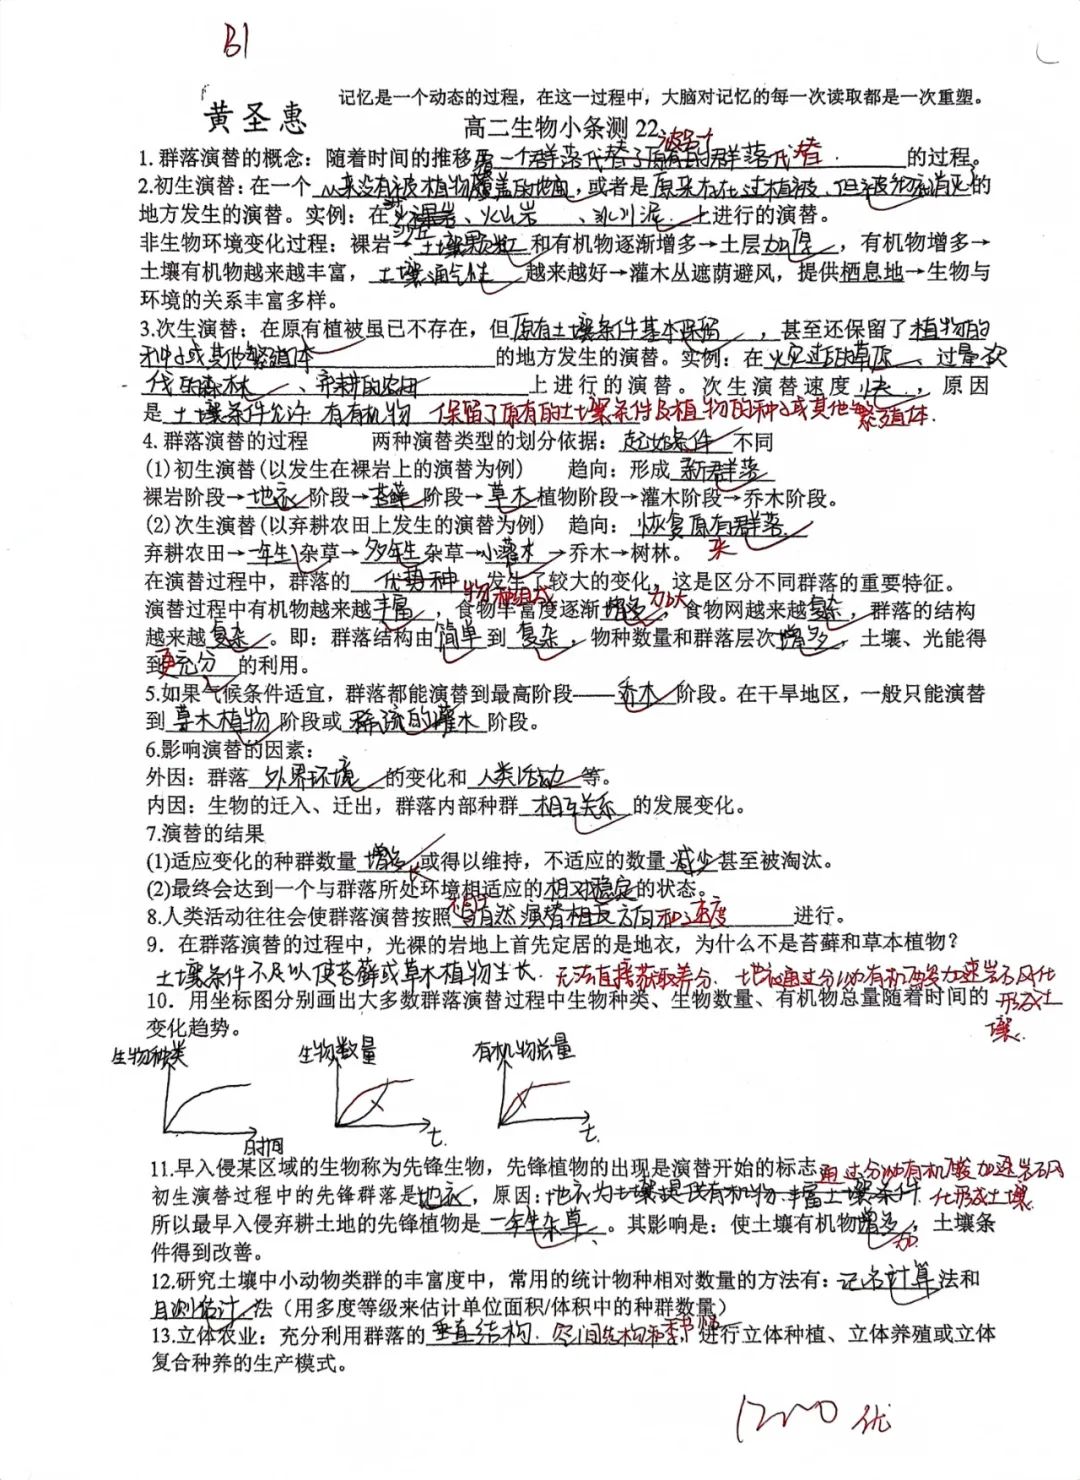 B1
黄圣惠
记忆是一个动态的过程，在这一过程中，大脑对记忆的每一次读取都是一次重塑。
高二生物小条测 22
1. 群落演替的概念：随着时间的推移 一个群落代替了原有的群落代替 的过程。
2.初生演替：在一个 从来没有被植物覆盖的地面 ，或者是 原来存在过植被、但被彻底消灭了 的
地方发生的演替。实例：在 裸岩、火山岩 、冰川泥 上进行的演替。
非生物环境变化过程：裸岩→ 土壤颗粒 和有机物逐渐增多→土层 加厚 ，有机物增多→
土壤有机物越来越丰富， 土壤通气性 越来越好→灌木丛遮荫避风，提供栖息地→生物与
环境的关系丰富多样。
3.次生演替：在原有植被虽已不存在，但 原有土壤条件基本保留 ，甚至还保留了 植物的
种子或其他繁殖体 的地方发生的演替。实例：在 火灾过后的草原 、 过量砍
伐的森林 、 弃耕的农田 上进行的演替。次生演替速度 快 ，原因
是 土壤条件允许 有有机物 保留了原有的土壤条件及植物的种子或其他繁殖体.
4. 群落演替的过程 两种演替类型的划分依据： 起始条件 不同
(1) 初生演替(以发生在裸岩上的演替为例) 趋向：形成 新群落
裸岩阶段→ 地衣 阶段→ 苔藓 阶段→ 草本 植物阶段→灌木阶段→乔木阶段。
(2) 次生演替(以弃耕农田上发生的演替为例) 趋向： 恢复原有群落
弃耕农田→ 一年生 杂草→ 多年生 杂草→ 小灌木 →乔木→树林。
在演替过程中，群落的 优势种 物种组成 发生了较大的变化，这是区分不同群落的重要特征。
演替过程中有机物越来越 丰富 ，食物丰富度逐渐 增多 加大 ，食物网越来越 复杂 ，群落的结构
越来越 复杂 。即：群落结构由 简单 到 复杂 ，物种数量和群落层次 增多 ，土壤、光能得
到 更充分 的利用。
5.如果气候条件适宜，群落都能演替到最高阶段—— 乔木 阶段。在干旱地区，一般只能演替
到 草本植物 阶段或 稀疏的灌木 阶段。
6.影响演替的因素：
外因：群落 外界环境 的变化和 人类活动 等。
内因：生物的迁入、迁出，群落内部种群 相互关系 的发展变化。
7.演替的结果
(1)适应变化的种群数量 增多 或得以维持，不适应的数量 减少 甚至被淘汰。
(2)最终会达到一个与群落所处环境相适应的 相对稳定 的状态。
8.人类活动往往会使群落演替按照 不同于 与自然演替相反方向和速度 进行。
9．在群落演替的过程中，光裸的岩地上首先定居的是地衣，为什么不是苔藓和草本植物？
土壤条件不足以使苔藓或草本植物生长. 无法直接获取养分. 地衣通过分泌有机酸加速岩石风化
形成土壤.
10．用坐标图分别画出大多数群落演替过程中生物种类、生物数量、有机物总量随着时间的
变化趋势。
生物种类 生物数量 有机物总量
时间 t. t.
11.早入侵某区域的生物称为先锋生物，先锋植物的出现是演替开始的标志。 通过分泌有机酸加速岩石风
初生演替过程中的先锋群落是 地衣 ，原因： 地衣为土壤提供有机物.丰富土壤条件. 化形成土壤
所以最早入侵弃耕土地的先锋植物是 一年生杂草 。其影响是：使土壤有机物 增多 加 ，土壤条
件得到改善。
12.研究土壤中小动物类群的丰富度中，常用的统计物种相对数量的方法有： 记名计算 法和
目测估计 法（用多度等级来估计单位面积/体积中的种群数量）
13.立体农业：充分利用群落的 垂直结构. 空间结构和季节性 进行立体种植、立体养殖或立体
复合种养的生产模式。
优